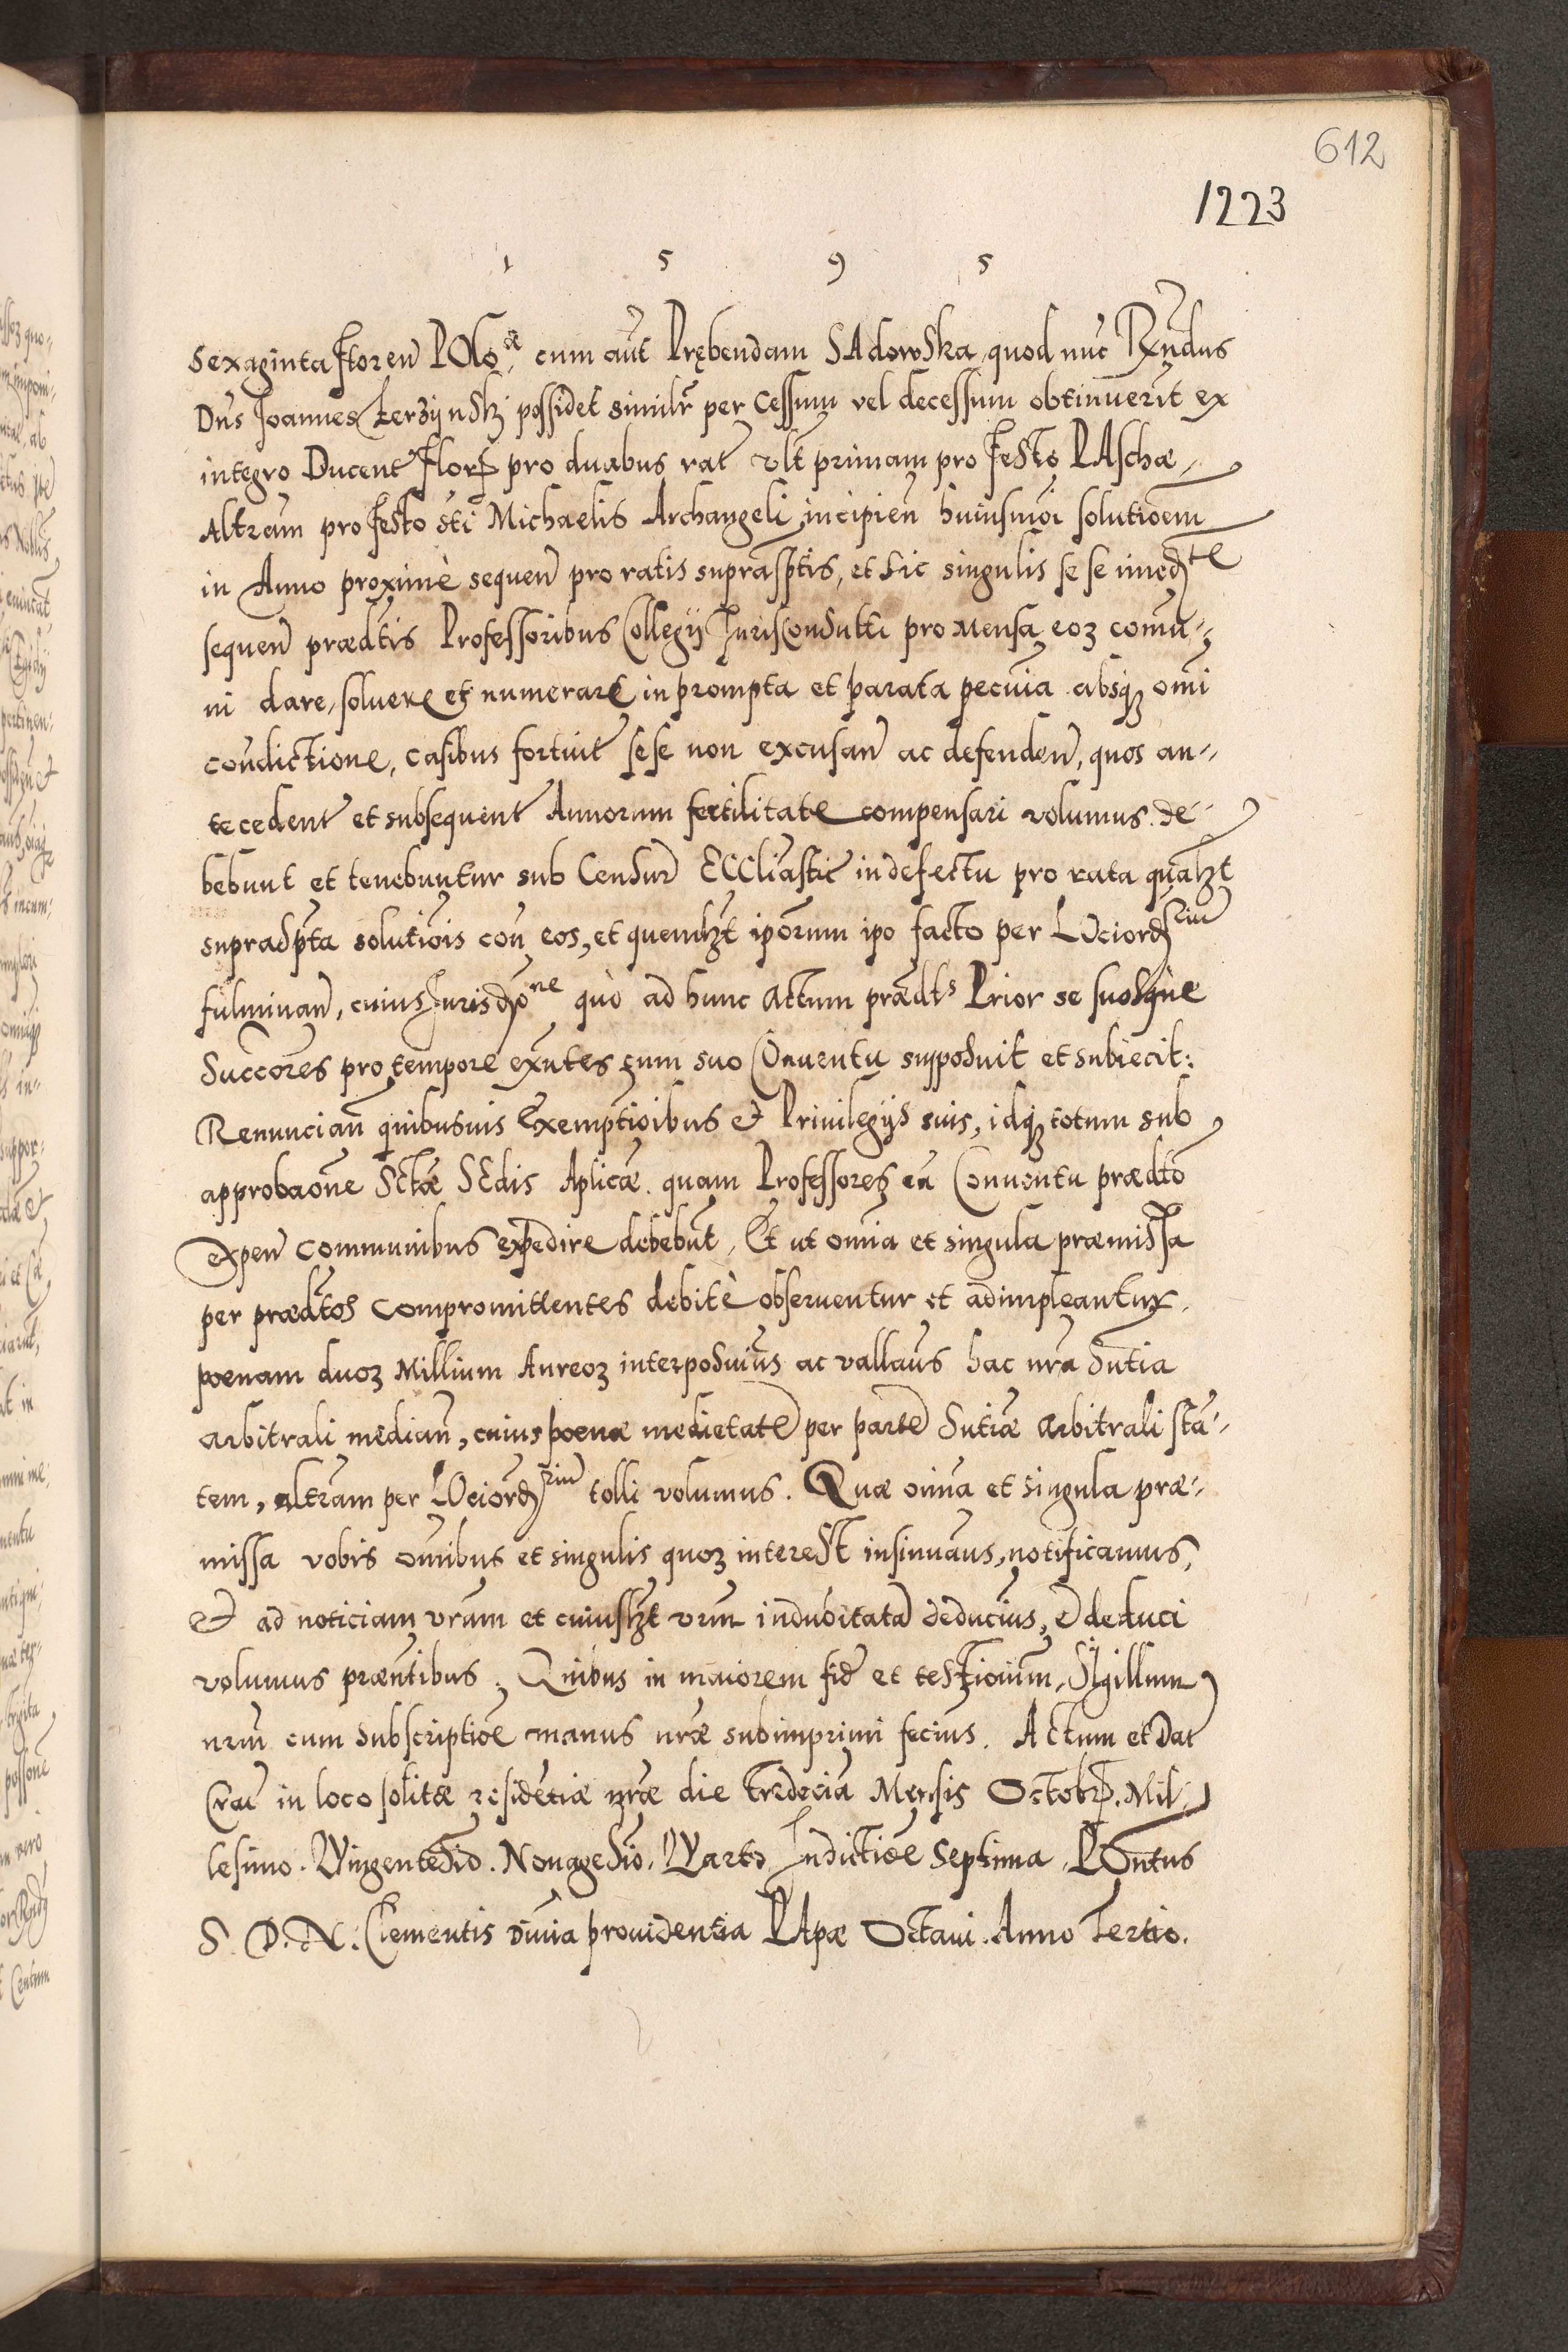 612
1223
1 5 9 5
sexaginta floren̄ Poloᵃᵉ, cum aut̄ Prębendam Sadowska, quod nūc Rn̄dus
Dn̄s Joannes possidet similr̄ per cessum vel decessum obtinuerit ex
integro Ducent̄ Flor̄ pro duabus rat̄ vlt primam pro Festo Paschæ,
Altram pro Festo sti Michaelis Archangeli, incipien̄ huiusmōi solutioem
in Anno proximè sequen̄ pro ratis suprasptis, et sic singulis se se imēdᵗᵉ
sequen̄ prædtis Professoribus Collegij Jurisconsulti pro Mensa eoꝝ comu-
ni dare, soluere et numerare in prompta et parata pecūia absqꝫ omi
condictione, casibus fortuit̄ sese non excusan̄ ac defenden̄, quos an-
tecedent̄ et subsequent̄ Annorum fertilitate compensari volumus. de-
bebunt et tenebuntur sub Censur̄ Eccliastic̄ in defectu pro rata qualꝫt
supradpta solutiois con̄ eos, et quemlꝫt ipōrum ipo facto per LOciordʳⁱᵘ̄
fulminan̄, cuius Jurisdōⁿᵉ quò ad hunc actum prædtˢ Prior se suosque
Succōres pro tempore exn̄tes cum suo Conuentu supposuit et subiecit:
Renuncian̄ quibusuis Exemptioibus et Priuilegijs suis, idqꝫ totum sub
approbaōne Sctæ Sedis Aplicæ. quam Professores cū Conuentu prædto
expen̄ communibus expedire debebūt, Et ut omia et singula præmissa
per prædtos compromittentes debitè obseruentur et adimpleantur,
poenam duoꝝ Millium Aureoꝝ interposuim̄s ac vallam̄s hac nr̄a sn̄tia
arbitrali median̄, cuius poenæ medietatē per partē sn̄tiæ arbitrali stā-
tem, altram per LOciordʳⁱᵘ̄ tolli volumus. Quæ omia et singula præ-
missa vobis omībus et singulis quoꝝ interest insinuam̄s, notificamus,
et ad noticiam vr̄am et cuiuslꝫt vr̄m indubitatā deducim̄s, et deduci
volumus præn̄tibus, Quibus in maiorem fid̄ et testimoium, Sigillum
nr̄m cum subscriptiōe manus nr̄æ subimprimi fecim̄s. Actum et Dat
Crac̄ in loco solitæ residētiæ nr̄æ die tredecia Mensis Octobr̄, Mil-
lesimo. Quingentesio. Nonagesio. Quarto, Indictiōe septima, Pontus
S. D. N. Clementis Diuia prouidentia Papæ Octaui. Anno Tertio.